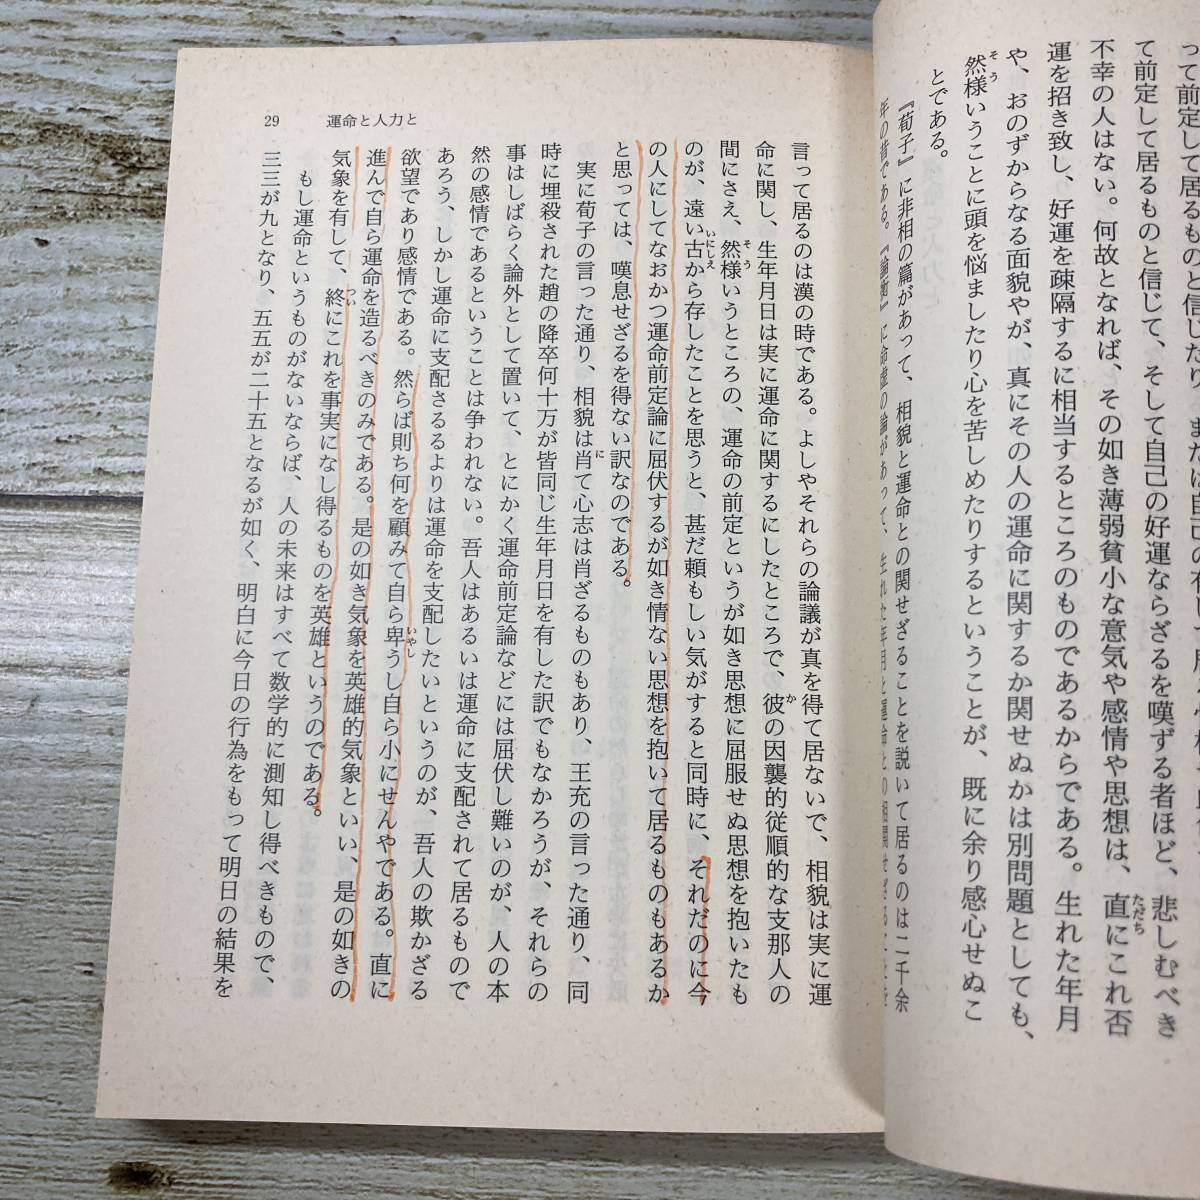 って前定して居るものと信じたり、または自己の
て前定して居るものと信じて、そして自己の好運ならざるを嘆ずる者ほど、悲しむべき
不幸の人はない。何故となれば、その如き薄弱貧小な意気や感情や思想は、直にこれ否
運を招き致し、好運を疎隔するに相当するところのものであるからである。生れた年月
や、おのずからなる面貌やが、真にその人の運命に関するか関せぬかは別問題としても、
然様いうことに頭を悩ましたり心を苦しめたりするということが、既に余り感心せぬこ
とである。
『荀子』に非相の篇があって、相貌と運命との関せざることを説いて居るのは二千余
年の昔である。『論衡』に命虚の論があって、生れた年月と運命との相関せざることを
言って居るのは漢の時である。よしやそれらの論議が真を得て居ないで、相貌は実に運
命に関し、生年月日は実に運命に関するにしたところで、彼の因襲的従順的な支那人の
間にさえ、然様いうところの、運命の前定というが如き思想に屈服せぬ思想を抱いたも
のが、遠い古から存したことを思うと、甚だ頼もしい気がすると同時に、それだのに今
の人にしてなおかつ運命前定論に屈伏するが如き情ない思想を抱いて居るものもあるか
と思っては、嘆息せざるを得ない訳なのである。
実に荀子の言った通り、相貌は肖て心志は肖ざるものもあり、王充の言った通り、同
時に埋殺された趙の降卒何十万が皆同じ生年月日を有した訳でもなかろうが、それらの
事はしばらく論外として置いて、とにかく運命前定論などには屈伏し難いのが、人の本
然の感情であるということは争われない。吾人はあるいは運命に支配されて居るもので
あろう、しかし運命に支配さるるよりは運命を支配したいというのが、吾人の欺かざる
欲望であり感情である。然らば則ち何を顧みて自ら卑うし自ら小にせんやである。直に
進んで自ら運命を造るべきのみである。是の如き気象を英雄的気象といい、是の如きの
気象を有して、終にこれを事実になし得るものを英雄というのである。
もし運命というものがないならば、人の未来はすべて数学的に測知し得べきもので、
三三が九となり、五五が二十五となるが如く、明白に今日の行為をもって明日の結果を
29 運命と人力と